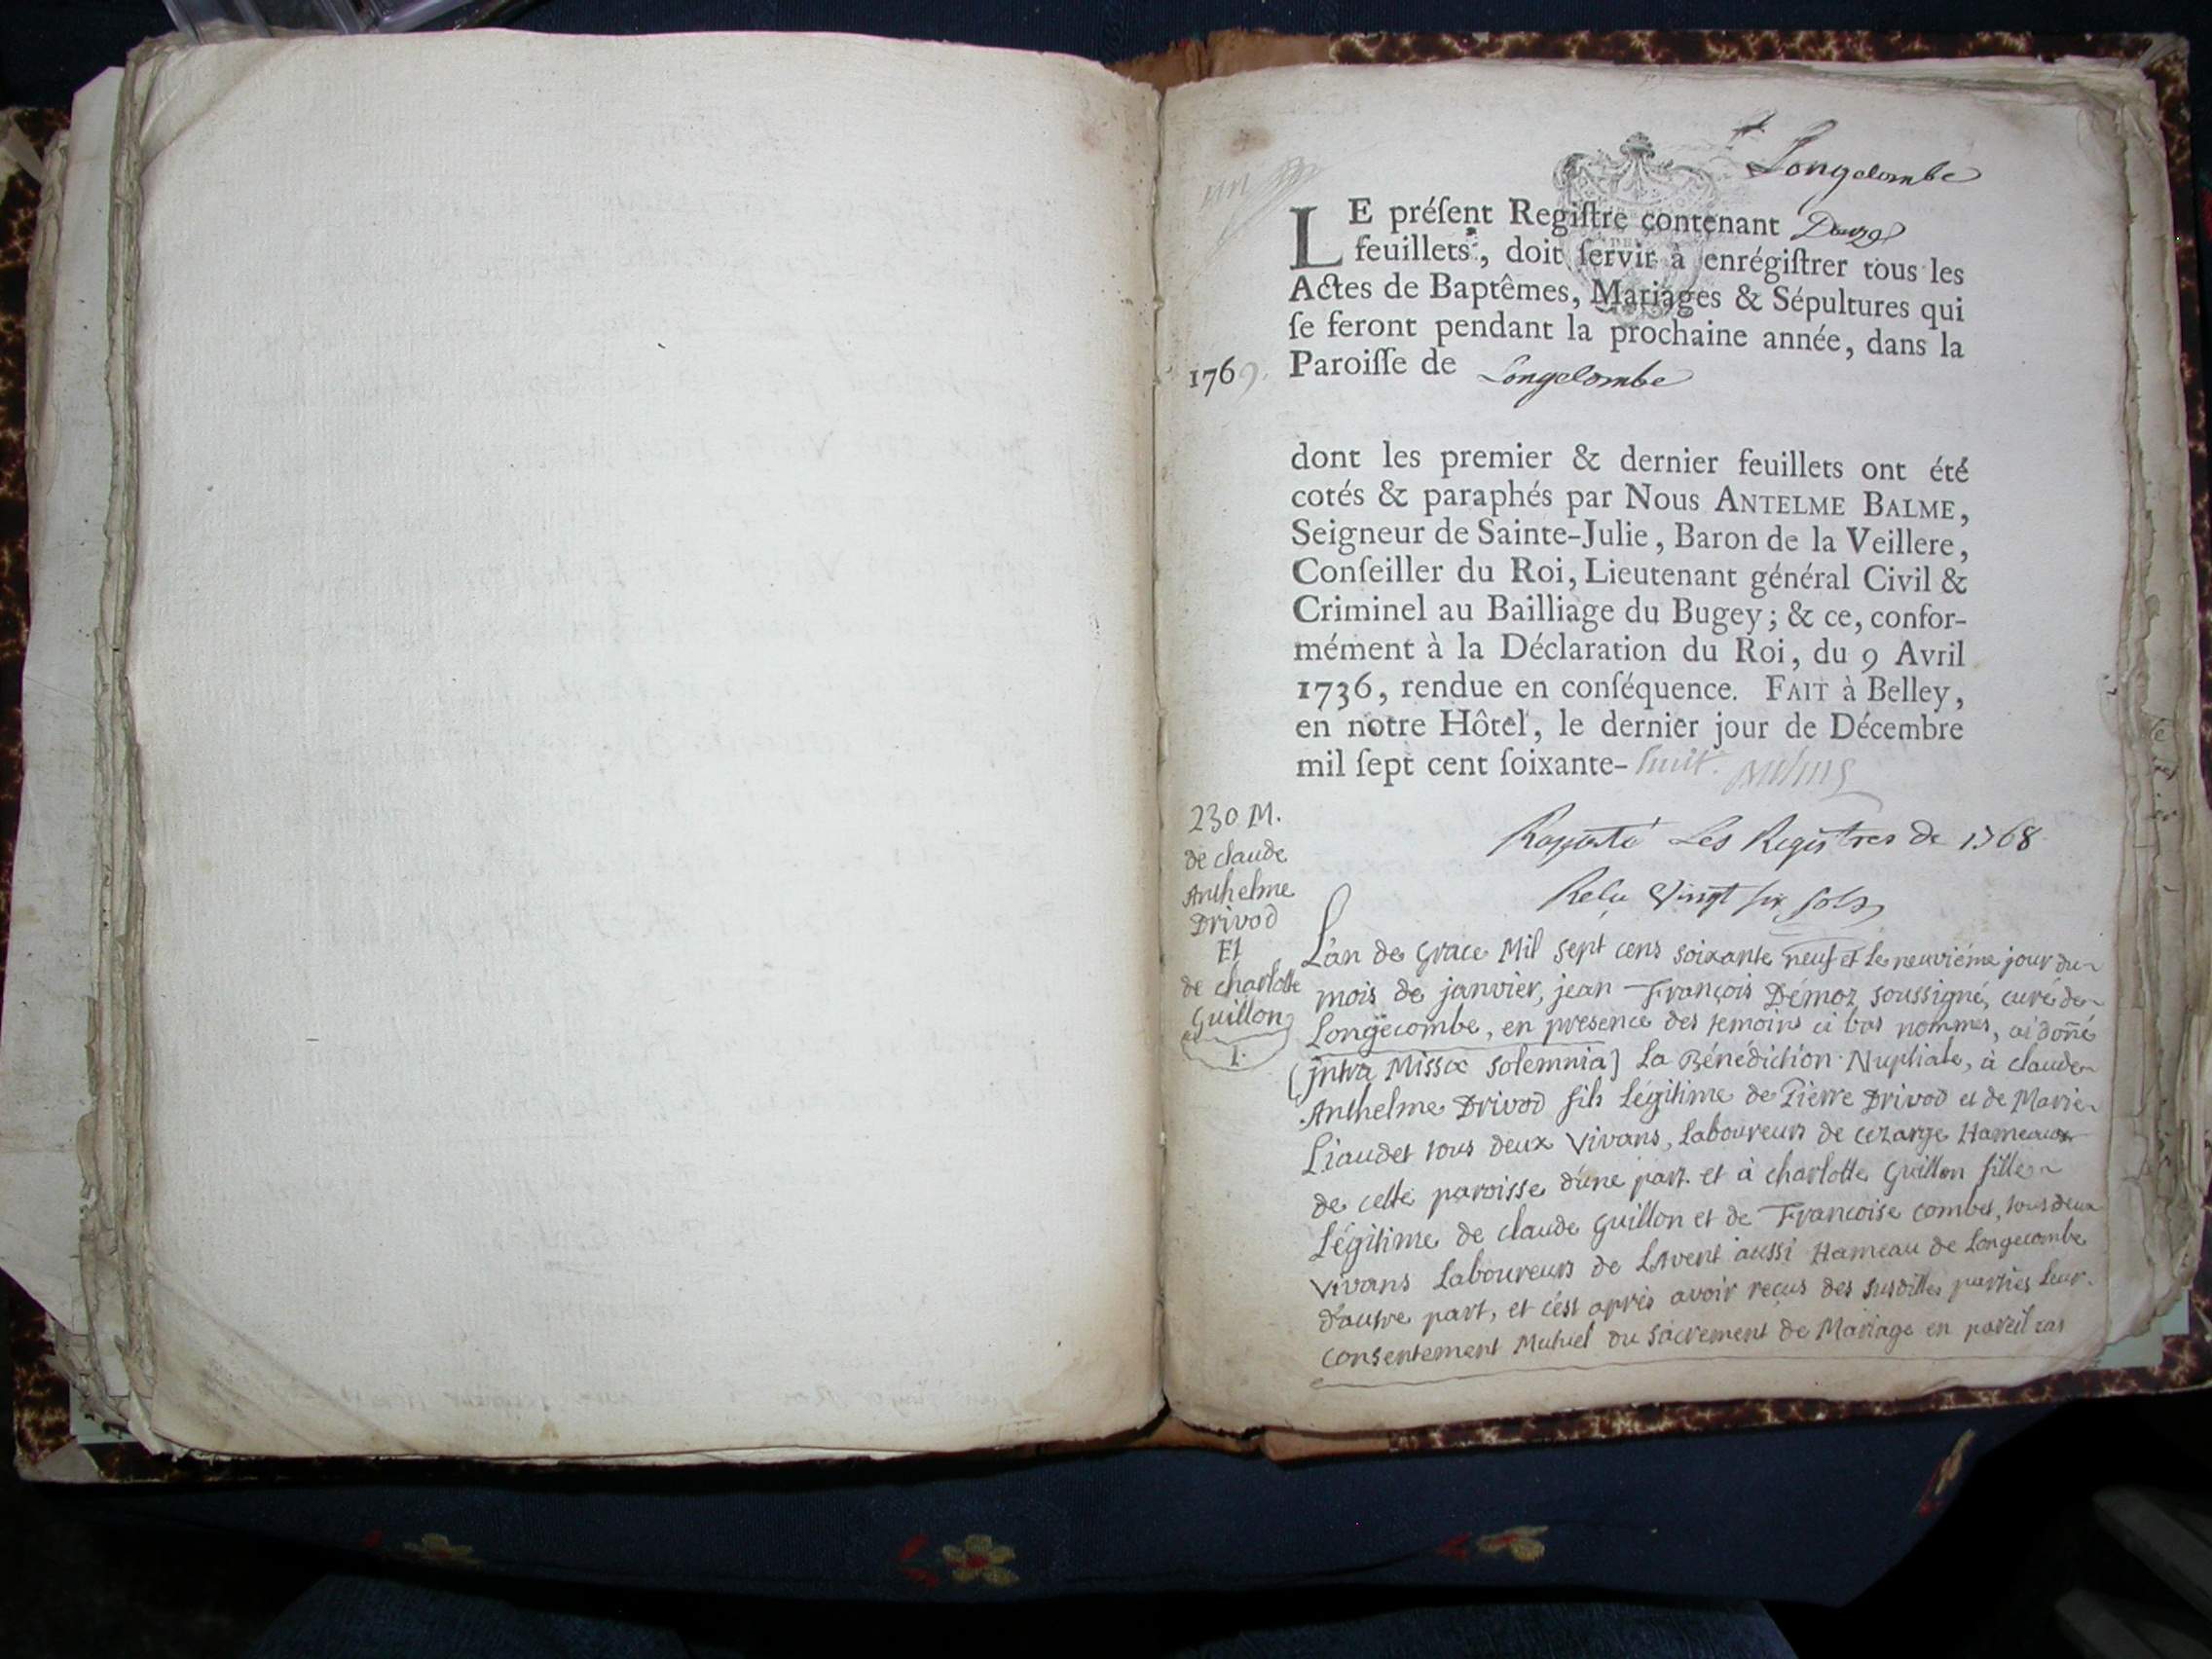 Longecombe
LE préſent Regiſtre contenant Douze
feuillets, doit ſervir à enrégiſtrer tous les
Actes de Baptêmes, Mariages & Sépultures qui
ſe feront pendant la prochaine année, dans la
1769. Paroiſſe de Longecombe
dont les premier & dernier feuillets ont été
cotés & paraphés par Nous ANTELME BALME,
Seigneur de Sainte-Julie, Baron de la Veillere,
Conſeiller du Roi, Lieutenant général Civil &
Criminel au Bailliage du Bugey; & ce, confor-
mément à la Déclaration du Roi, du 9 Avril
1736, rendue en conſéquence. FAIT à Belley,
en notre Hôtel, le dernier jour de Décembre
mil ſept cent ſoixante-huit.
Rapporté Les Registres de 1768
Reçu Vingt six sols
230 M.
de claude
Anthelme
Drivod
Et
de charlotte
Guillon
1.
L'an de Grace Mil sept cens soixante neuf et le neuviéme jour du
mois de janvier, jean François Démoz soussigné, curé de
Longecombe, en presence des temoins ci bas nommés, ai donné
(jntra Missæ solemnia) La Bénédiction Nuptiale, à claude
Anthelme Drivod fils Légitime de Pierre Drivod et de Marie
Liaudet tous deux Vivans, Laboureurs de cezarge Hameau
de cette paroisse d'une part. et à charlotte Guillon fille
Légitime de claude Guillon et de Francoise combet, tous deux
Vivans Laboureurs de Lavent aussi Hameau de Longecombe
d'autre part, et c'est après avoir reçus des susdittes parties leur
consentement Mutuel du sacrement de Mariage en pareil cas